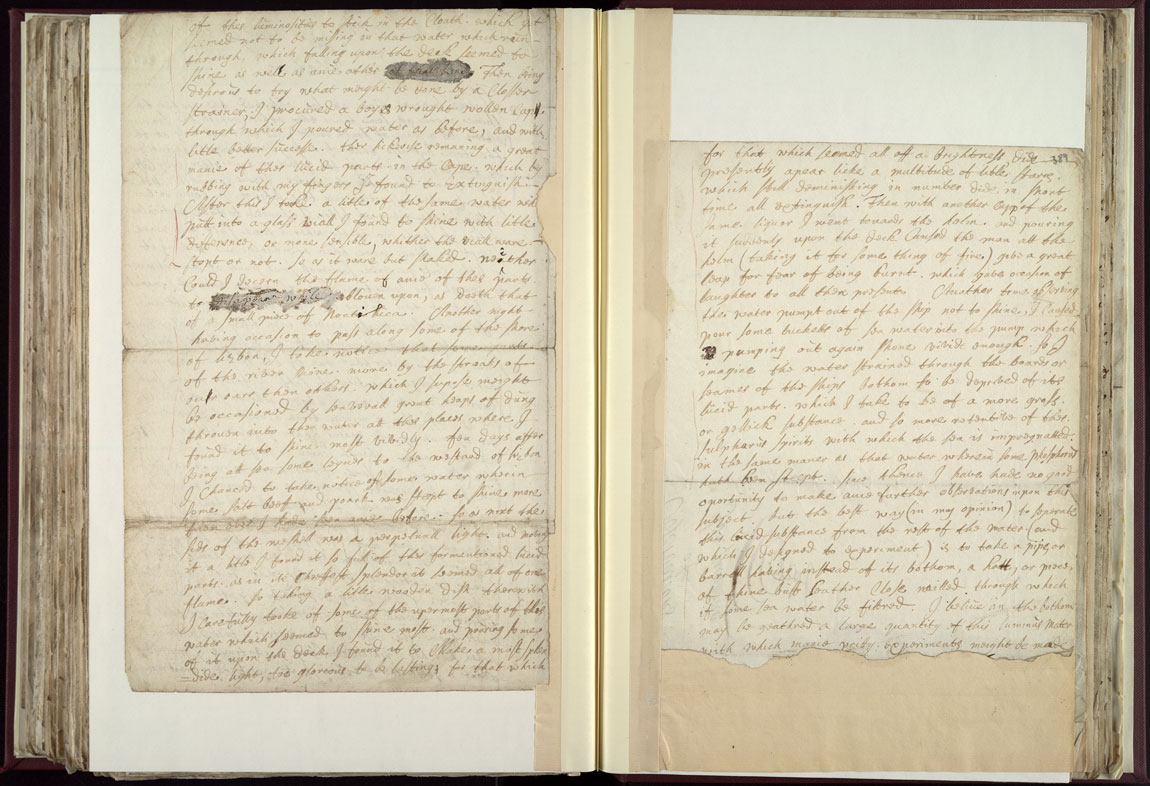 of this luminosities to stick in the Cloath. which yet
seemed not to be missing in that water which rann
through, which falling upon the deck seemed to
shine as well as anie other Then being
desirous to try what meight be done by a Closser
strainer, I procured a boys wrought wollen Capp
through which I poured water as before, and with
litle better successe. ther lickwise remaning a great
manie of ther lucid parts in the Cape. which by
rubbing with my fingers I found to extinguish.
After this I tooke a litle of the same water wch
put into a glass Viall I found to shine with little
difference, or more sensible, whither the Viall ware
stopt or not. so as it ware but shaked. neither
Could I discern the flame of anie of thes parts
to ablowen upon, as doeth that
of a small piece of Noctiluca. Another night
having occasion to pass along some of the shore
of lisbon, I tooke notice that some parts
of the river shine more by the stroaks of
our oars then others. which I supose meight
be occasioned by severall great heaps of dung
throwen into the water at thes places where I
found it to shine most vividly. Few days after
being at sea some leagues to the westward of lisbon
I Chanced to take notice of some water wherin
some salt beef and poark was steept to shine more
then ever I have seen anie before. so as next the
sids of the vesshell was a perpetuall light. and moving
it a litle I found it so full of the formentioned lucid
parts. as in its splendor it seemed all of one
flame. So taking a litle wooden dish therewith
I Carefully tooke of some of the upermost parts of this
water which seemed to shine most. and pooring some
of it upon the deck I found it to Make a most splen
=dide light, too glorious to be lasting; for that which
389
for that which seemed all off a brightness, did
presently apear licke a multitude of litle starrs.
which still deminishing in number did, in short
time all extinguish. Then with another Cup of the
same liquor I went towards the helm. and pouring
it suddenly upon the deck Caused the man att the
helm (taking it for some thing of fire) give a great
leap for fear of being burnt. which gave occasion of
laughter to all then present. Another time observing
the water pumpt out of the ship not to shine, I Caused
pour some buckets of sea water into the pump which
pumping out again shone vivid enough. so I
imagine the water strained through the boards or
seames of the ships bothom to be deprived of its
lucid parts. which I take to be of a more gross.
or gellick substance. and so more retentive of thes
sulpharius spirits with which the sea is impregnatted.
in the same maner as that water wherein some phosphorus
hath been steept. since thence I have hade no good
oportunity to make anie further observations upon this
subject. but the best way (in my opinion) to seperate
this lucid substance from the rest of the water (and
which I designed to experiment) is to take a pipe, or
barrell having instead of its bothom, a hatt, or piece,
of thine buff Leather Close nailled. through which
if some sea water be filtred. I belive att the bothom
may be gathred a large quantity of this luminus Mater
with which manie prity experiments meight be made